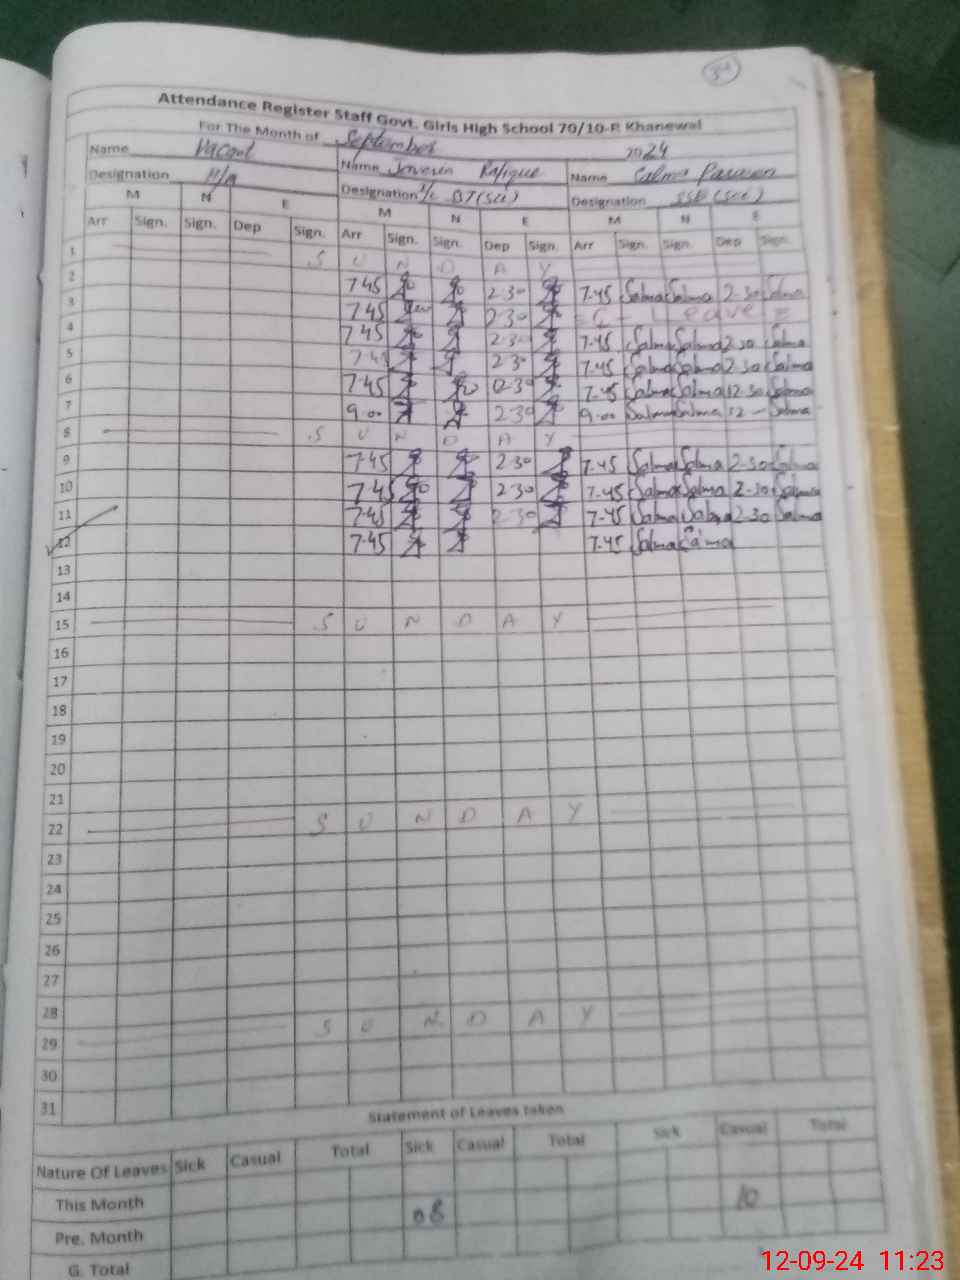 34
Attendance Register Staff Govt. Girls High School 70/10-R Khanewal
For The Month of September 2024
Name Vacant Name Javeria Rafique Name Salma Parveen
Designation N/A Designation I/C BT(Sci) Designation SSE (Sci)
M N E M N E M N E
Arr Sign. Sign. Dep Sign. Arr Sign. Sign. Dep Sign. Arr Sign. Sign. Dep Sign.
1 S U N D A Y
2 7.45 2.30 7.45 Salma Salma 2.30 Salma
3 7.45 2.30 C - Leave
4 7.45 2.30 7.45 Salma Salma 2.30 Salma
5 7.45 2.30 7.45 Salma Salma 2.30 Salma
6 7.45 12.30 7.45 Salma Salma 12.30 Salma
7 9.00 2.30 9.00 Salma Salma 12 - Salma
8 S U N D A Y
9 7.45 2.30 7.45 Salma Salma 2.30 Salma
10 7.45 2.30 7.45 Salma Salma 2.30 Salma
11 7.45 2.30 7.45 Salma Salma 2.30 Salma
12 7.45 7.45 Salma Salma
13
14
15 S U N D A Y
16
17
18
19
20
21
22 S U N D A Y
23
24
25
26
27
28
29 S U N D A Y
30
31
Statement of Leaves taken
Nature Of Leaves Sick Casual Total Sick Casual Total Sick Casual Total
This Month
Pre. Month 08 10
G. Total
12-09-24 11:23